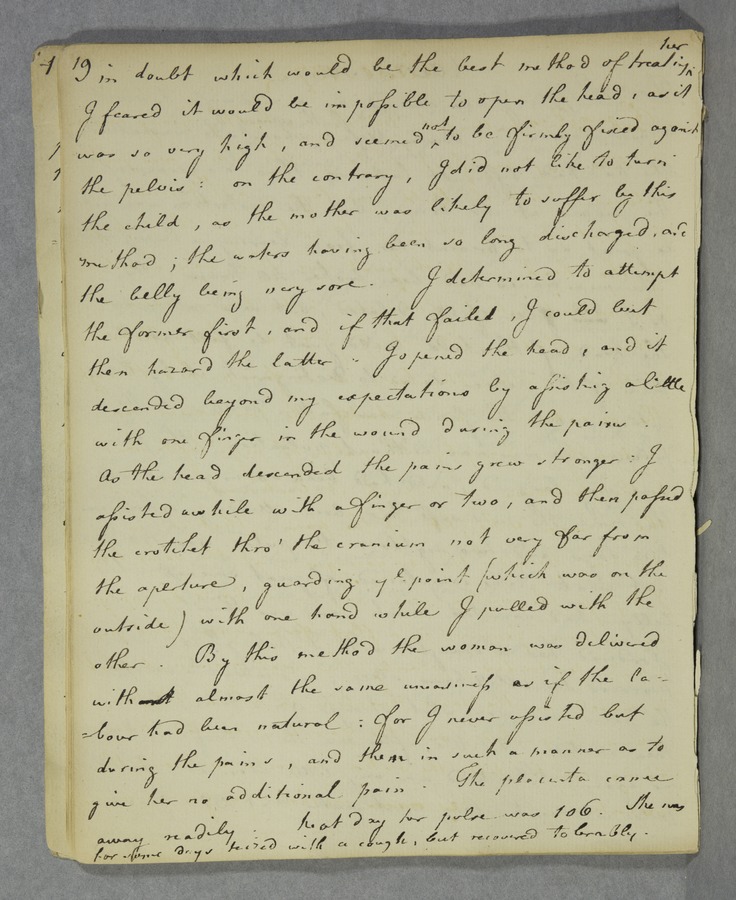 19 in doubt which would be the best method of treating her
I feared it would be impossible to open the head, as it
was so very high, and seemed not to be firmly fixed against
the pelvis: on the contrary, I did not like to turn
the child, as the mother was likely to suffer by this
method; the waters having been so long discharged, and
the belly being very sore. I determined to attempt
the former first, and if that failed, I could but
then hazard the latter: I opened the head, and it
descended beyond my expectations by assisting a little
with one finger in the wound during the pains.
As the head descended the pains grew stronger: I
assisted awhile with a finger or two, and then passed
the crotchet thro' the cranium not very far from
the aperture, guarding ye point (which was on the
outside) with one hand while I pulled with the
other. By this method the woman was delivered
with almost the same uneasiness as if the la-
=bour had been natural: for I never assisted but
during the pains, and then in such a manner as to
give her no additional pain. The placenta came
away readily. Next day her pulse was 106. She was
for some days teized with a cough, but recovered tolerably.